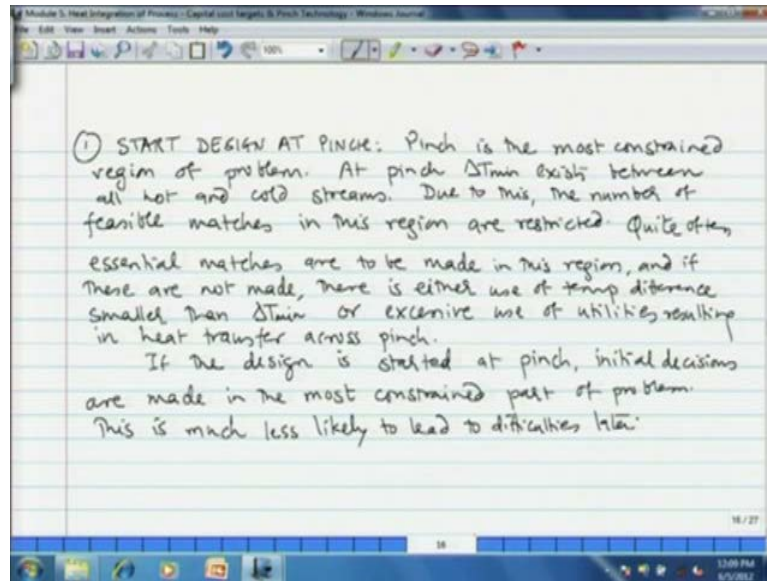 Module 5: Heat Integration of Process - Capital cost targets & Pinch Technology - Windows Journal
File Edit View Insert Actions Tools Help
100%
① START DESIGN AT PINCH: Pinch is the most constrained
region of problem. At pinch ΔTmin exists between
all hot and cold streams. Due to this, the number of
feasible matches in this region are restricted. Quite often,
essential matches are to be made in this region, and if
these are not made, there is either use of temp diference
smaller than ΔTmin or excessive use of utilities resulting
in heat transfer across pinch.
If the design is started at pinch, initial decisions
are made in the most constrained part of problem.
This is much less likely to lead to difficulties later.
16 / 27
16
12:09 PM
6/5/2012